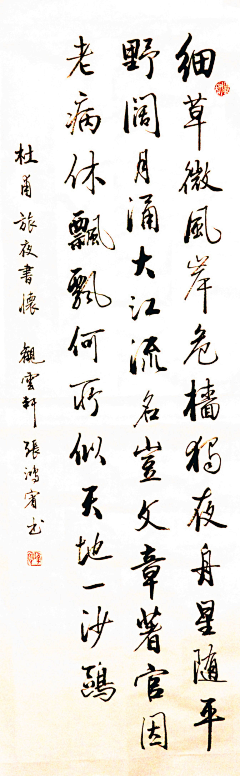 細草微風岸危檣獨夜舟星随平
野闊月涌大江流名豈文章著官因
老病休飄飄何所似天地一沙鷗
杜甫旅夜書懷 觀雲軒張鴻賓书